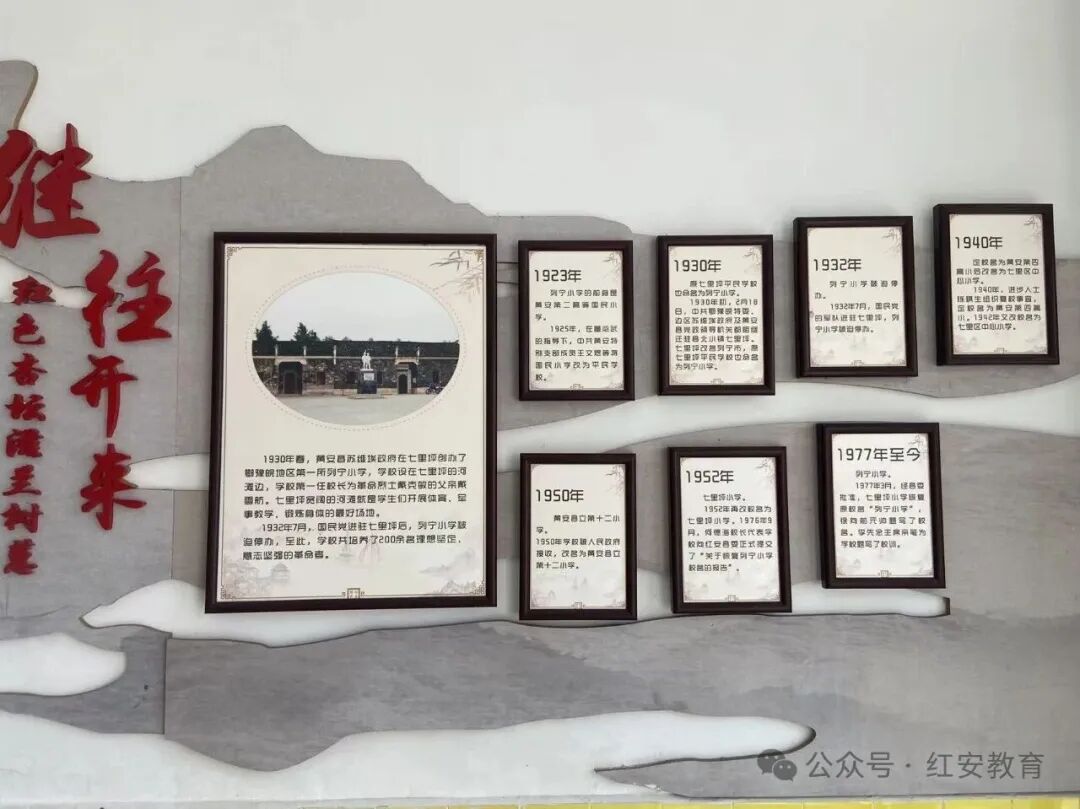 继往开来
红色杏坛
1930年春，黄安县苏维埃政府在七里坪创办了
鄂豫皖地区第一所列宁小学，学校设在七里坪的河
滩边，学校第一任校长为革命烈士戴克敏的父亲戴
雪舫。七里坪宽阔的河滩就是学生们开展体育、军
事教学、锻炼身体的最好场地。
1932年7月，国民党进驻七里坪后，列宁小学被
迫停办，至此，学校共培养了200余名理想坚定、
意志坚强的革命者。
1923年
列宁小学的前身是
黄安第二高等国民小
学。
1925年，在董必武
的指导下，中共黄安特
别支部成员王文煜等将
国民小学改为平民学
校。
1930年
原七里坪平民学校
也命名为列宁小学。
1930年初，2月18
日，中共鄂豫皖特委、
边区苏维埃政府及黄安
县党政领导机关都陆续
迁驻县北小镇七里坪。
七里坪改名列宁市，原
七里坪平民学校也命名
为列宁小学。
1932年
列宁小学被迫停
办。
1932年7月，国民党
的军队进驻七里坪，列
宁小学被迫停办。
1940年
定校名为黄安第四
高小后改名为七里区中
心小学。
1940年，进步人士
组织复校事宜，
定校名为黄安第四高
小。1942年又改校名为
七里区中心小学。
1950年
黄安县立第十二小
学。
1950年学校被人民政府
接收，改名为黄安县立
第十二小学。
1952年
七里坪小学。
1952年再改校名为
七里坪小学。1976年9
月，何德海校长代表学
校向红安县委正式提交
了“关于恢复列宁小学
校名的报告”。
1977年至今
列宁小学。
1977年3月，经县委
批准，七里坪小学恢复
原校名“列宁小学”，
徐向前元帅题写了校
名。李先念主席亲笔为
学校题写了校训。
公众号·红安教育